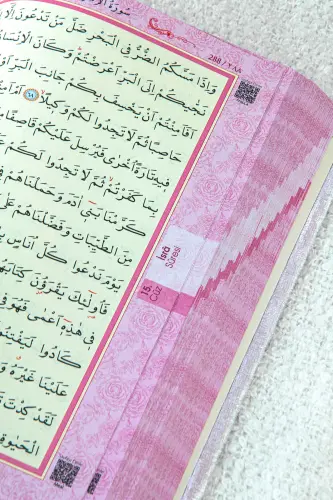 288 / ٢٨٨
سُورَةُ
وَاِذَا مَسَّكُمُ الضُّرُّ فِي الْبَحْرِ ضَلَّ مَنْ تَدْعُونَ اِلَّٓا
نَجّٰيكُمْ اِلَى الْبَرِّ اَعْرَضْتُمْ وَكَانَ الْاِنْسَانُ
اَفَاَمِنْتُمْ اَنْ يَخْسِفَ بِكُمْ جَانِبَ الْبَرِّ اَوْ
حَاصِبًا ثُمَّ لَا تَجِدُوا لَكُمْ وَكِيلًا ٦٨ اَمْ
فِيهِ تَارَةً اُخْرٰى فَيُرْسِلَ عَلَيْكُمْ قَاصِفًا
بِمَا كَفَرْتُمْ ثُمَّ لَا تَجِدُوا لَكُمْ
كَرَّمْنَا بَنِٓي اٰدَمَ وَحَمَلْنَاهُمْ
مِنَ الطَّيِّبَاتِ وَفَضَّلْنَاهُمْ عَلٰى
يَوْمَ نَدْعُوا كُلَّ اُنَاسٍ
فَاُو۬لٰٓئِكَ يَقْرَؤُ۫نَ كِتَابَهُمْ
فِي هٰذِهِٓ اَعْمٰى فَهُوَ
كَادُوا
عَلَيْنَا غَيْرَهُ
لَقَدْ كِدْتَ
الْحَيٰوةِ
İsrâ
Sûresi
15.
Cüz